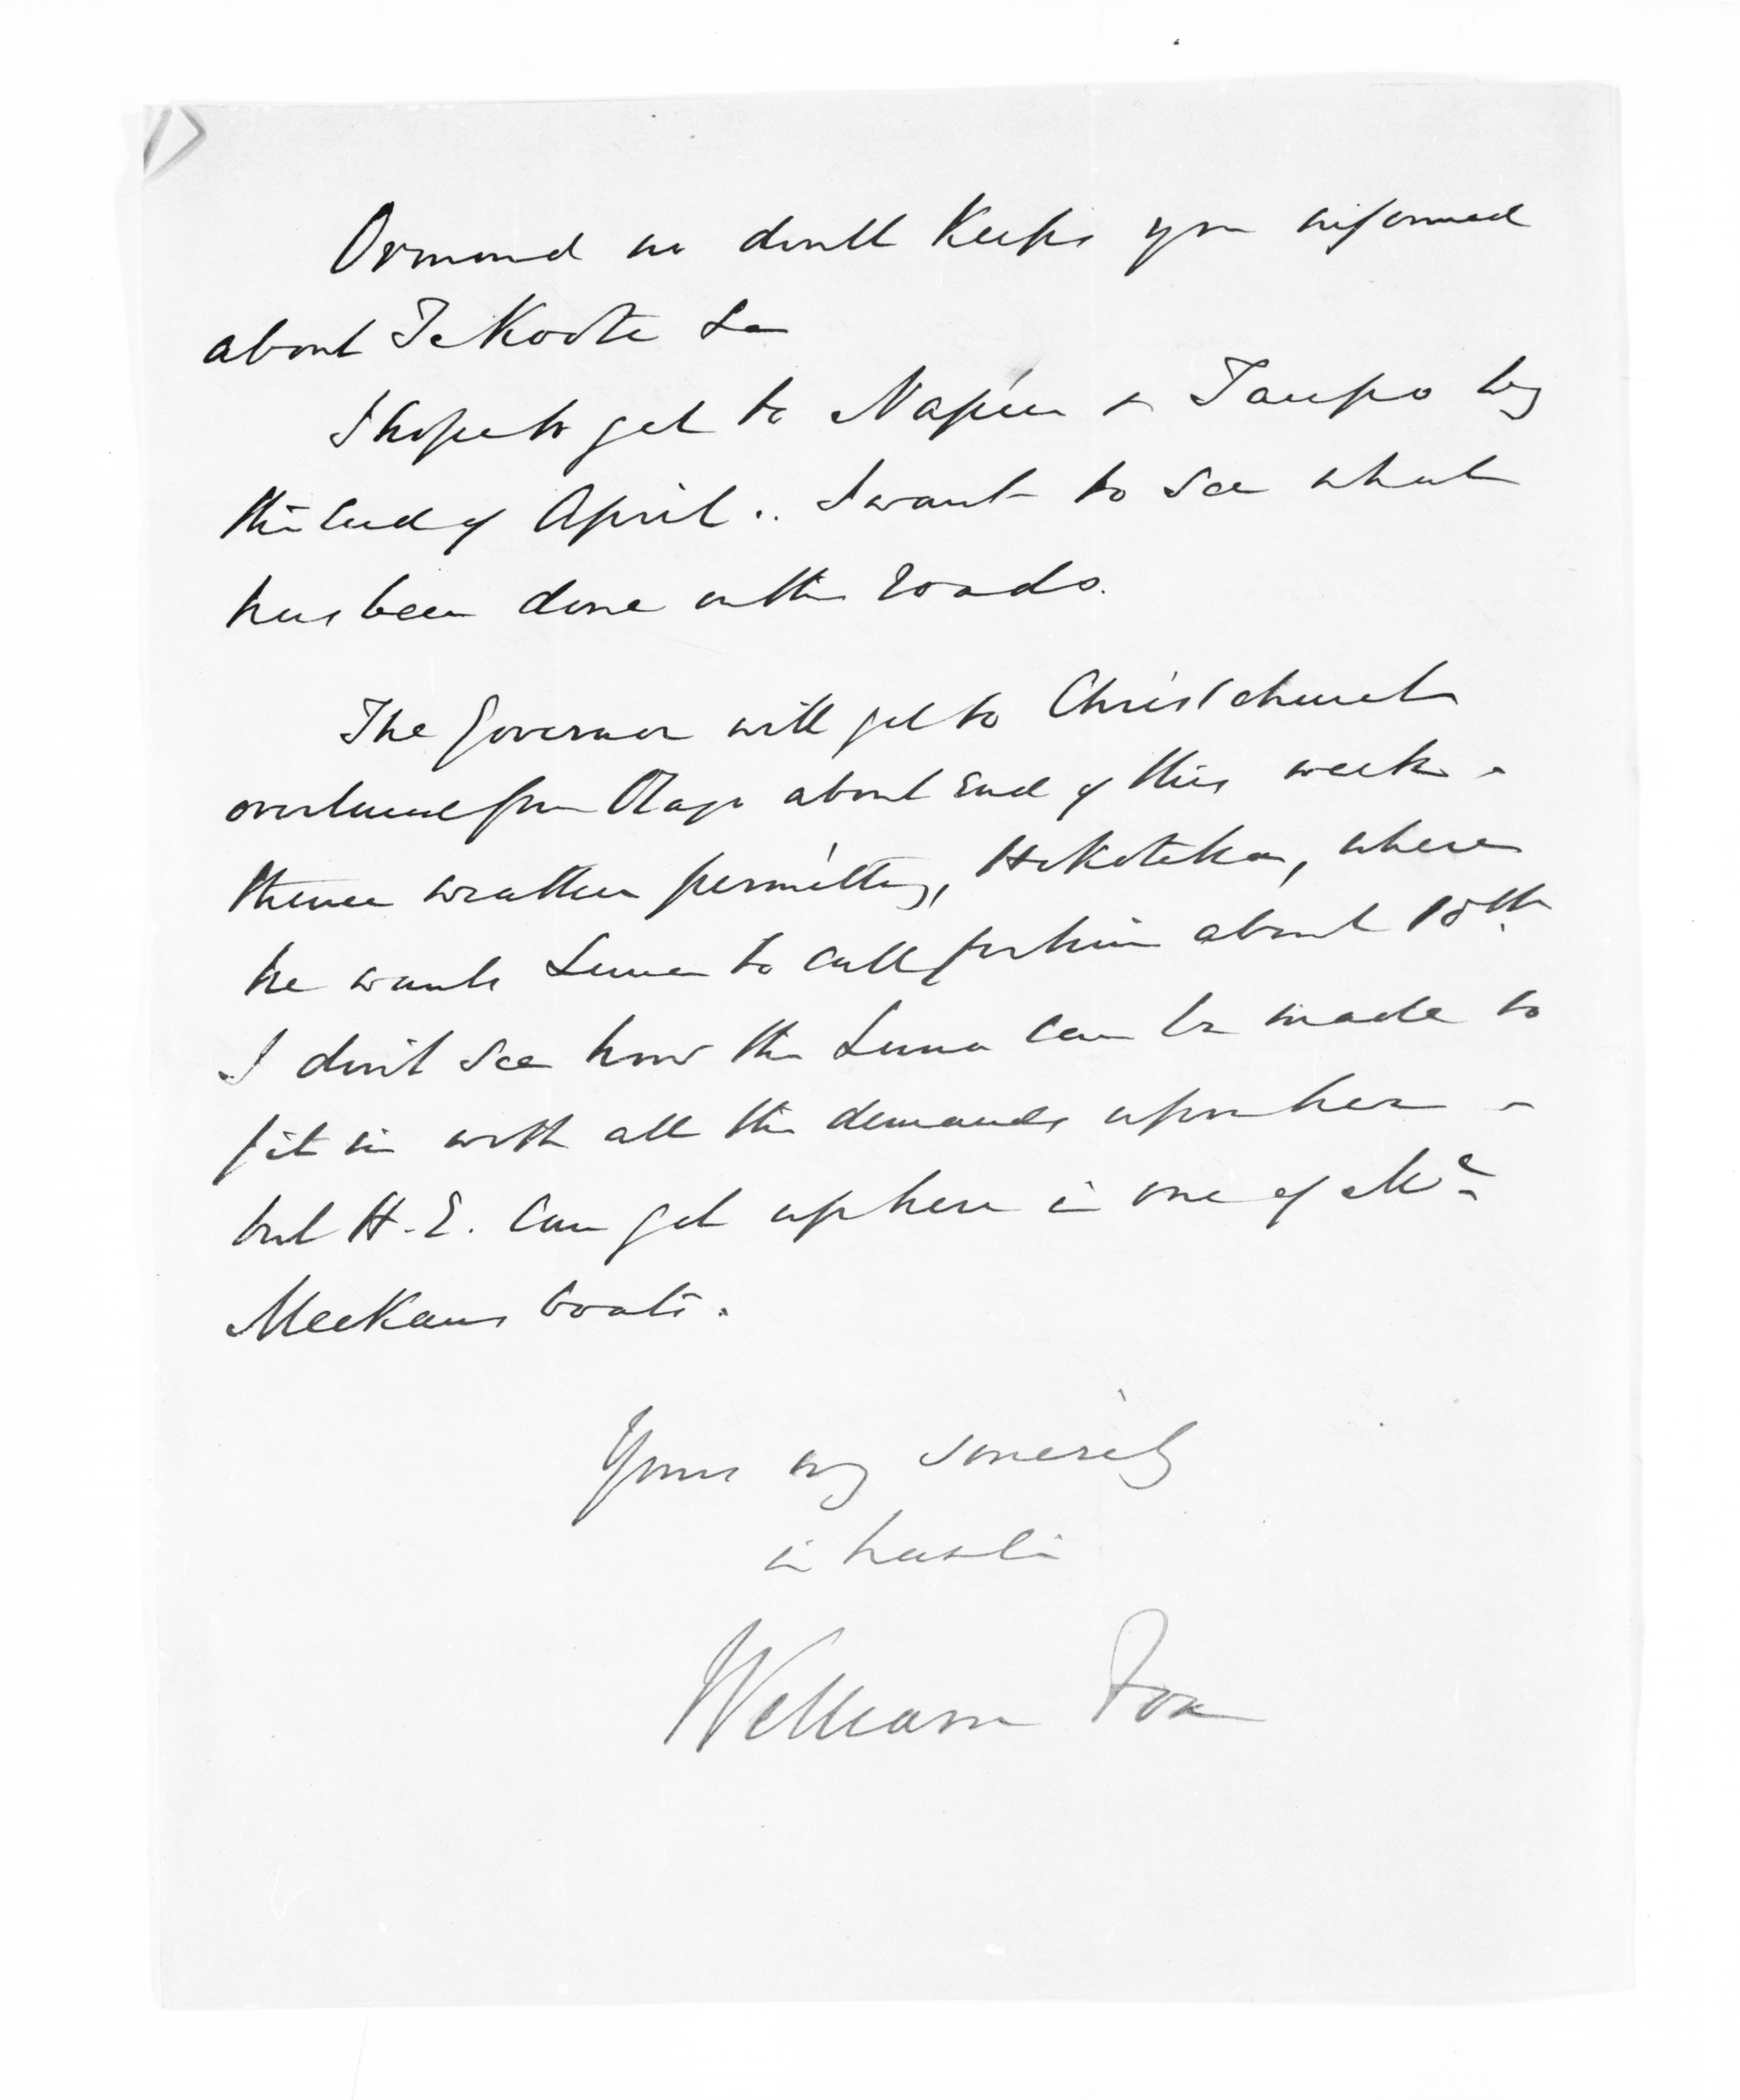 Ormond no doubt keeps you informed
about Te Kooti &c
I hope to get to Napier & Taupo by
the end of April.. I want to see what
has been done on the roads.
The Governor will get to Christchurch
overland from Otago about end of this week -
thence weather permitting, Hokitika, where
he wants Luna to call for him about 15th.
I don't see how the Luna can be made to
fit in with all the demands upon her -
but H.E. can get up here in one of
Meekans boats.
Yours very sincerely
in haste
William Fox